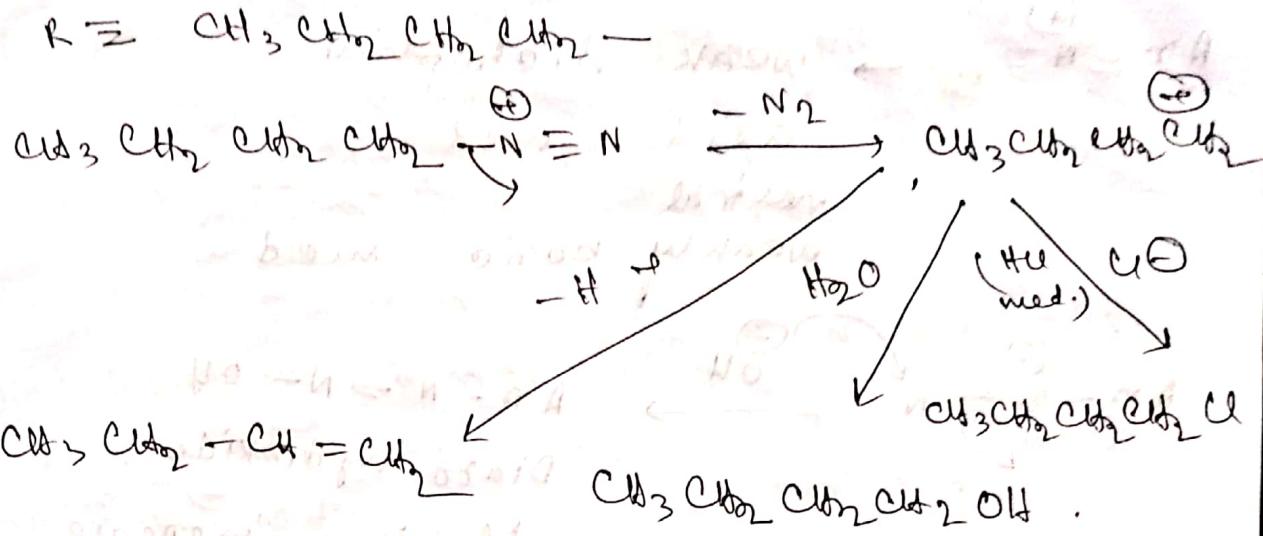 R ≡ CH3 CH2 CH2 CH2 —
CH3 CH2 CH2 CH2 — N⊕ ≡ N — N2 → CH3 CH2 CH2 CH2⊕
— H+
H2O
(HCl med.)
Cl⊖
CH3 CH2 CH2 CH2 Cl
CH3 CH2 — CH = CH2
CH3 CH2 CH2 CH2 OH .